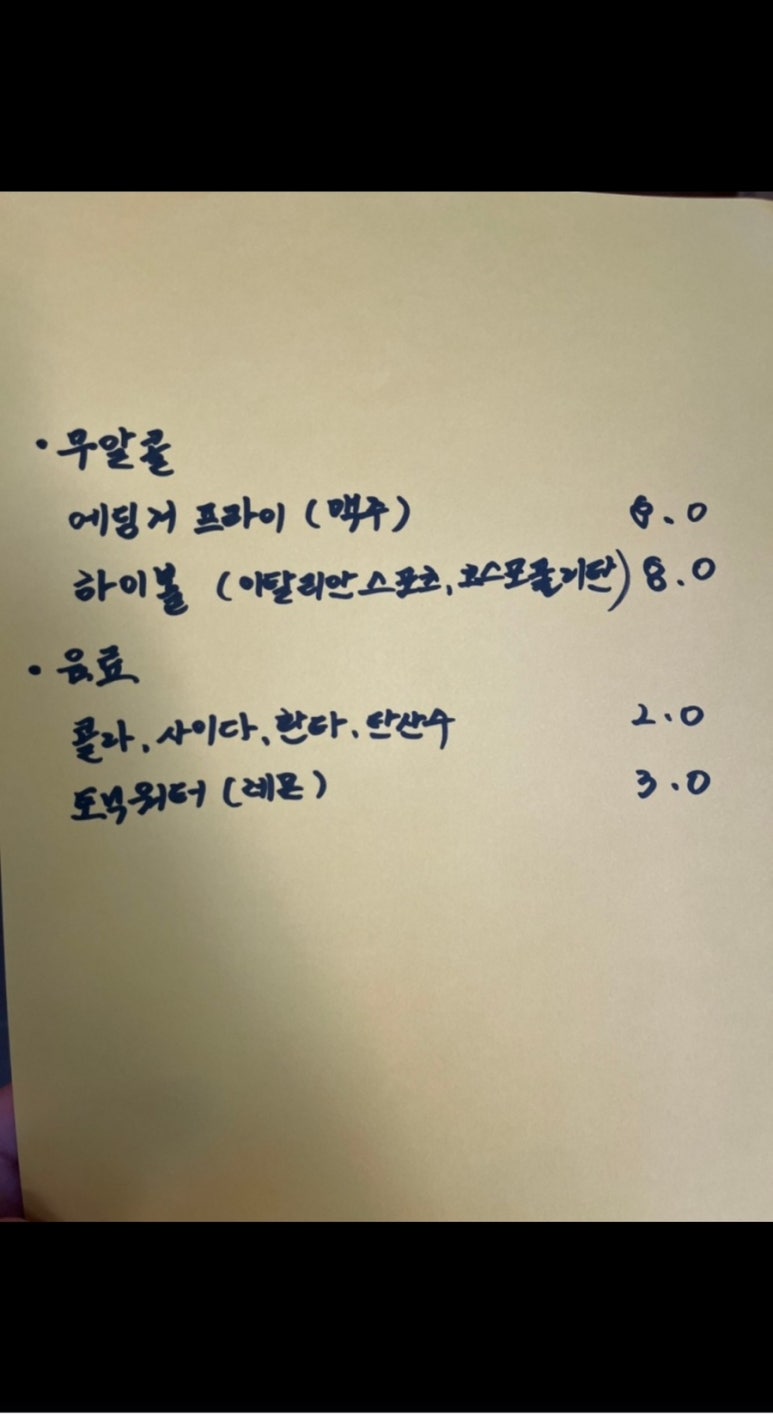 · 무알콜
에딩거 프라이 (맥주) 8.0
하이볼 (이탈리안스프츠, 코스모폴리탄) 8.0
· 음료
콜라, 사이다, 환타, 탄산수 2.0
토닉워터 (레몬) 3.0